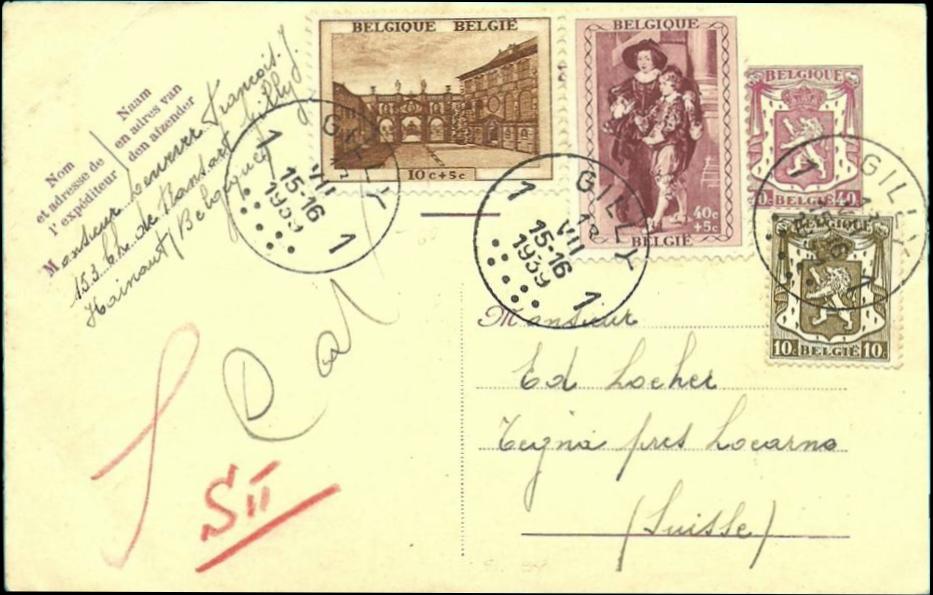 BELGIQUE BELGIË
10c+5c
BELGIQUE
40c
+5c
BELGIË
BELGIQUE
40
BELGIË
BELGIQUE
10c BELGIË 10c
GILLY
1
1 VII
15-16
1939
1
GILLY
1
1 VII
15-16
1939
1
GILLY
1
1
Nom
et adresse de
l'expéditeur
Naam
en adres van
den afzender
Monsieur François J.
153 de Ransart Gilly
Hainaut / Belgique
Monsieur
Ed Locher
Tegna près Locarno
(Suisse)
SII